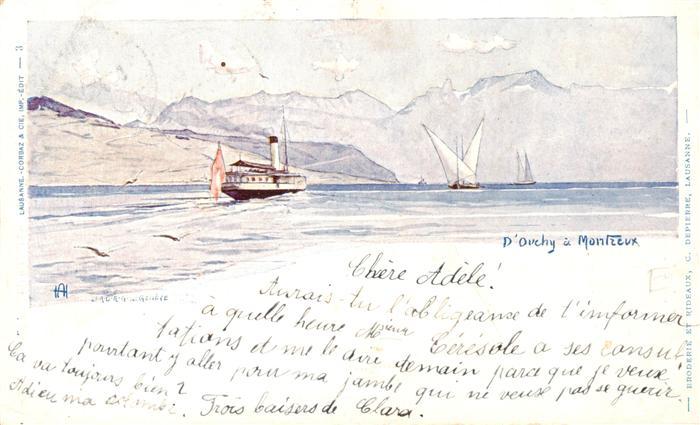 LAUSANNE. - CORBAZ & CIE, IMP.-ÉDIT — 3
D'Ouchy à Montreux
HA
BRODERIE ET RIDEAUX, C. DEPIERRE, LAUSANNE.
Chère Adèle!
Aurais-tu l'obligeance de t'informer
à quelle heure Msieur Cérésole a ses consul
tations et me le dire demain parce que je veux
pourtant y aller pour ma jambe qui ne veux pas se guérir.
Ca va toujours bien?
Adieu ma. Trois baisers de Clara.